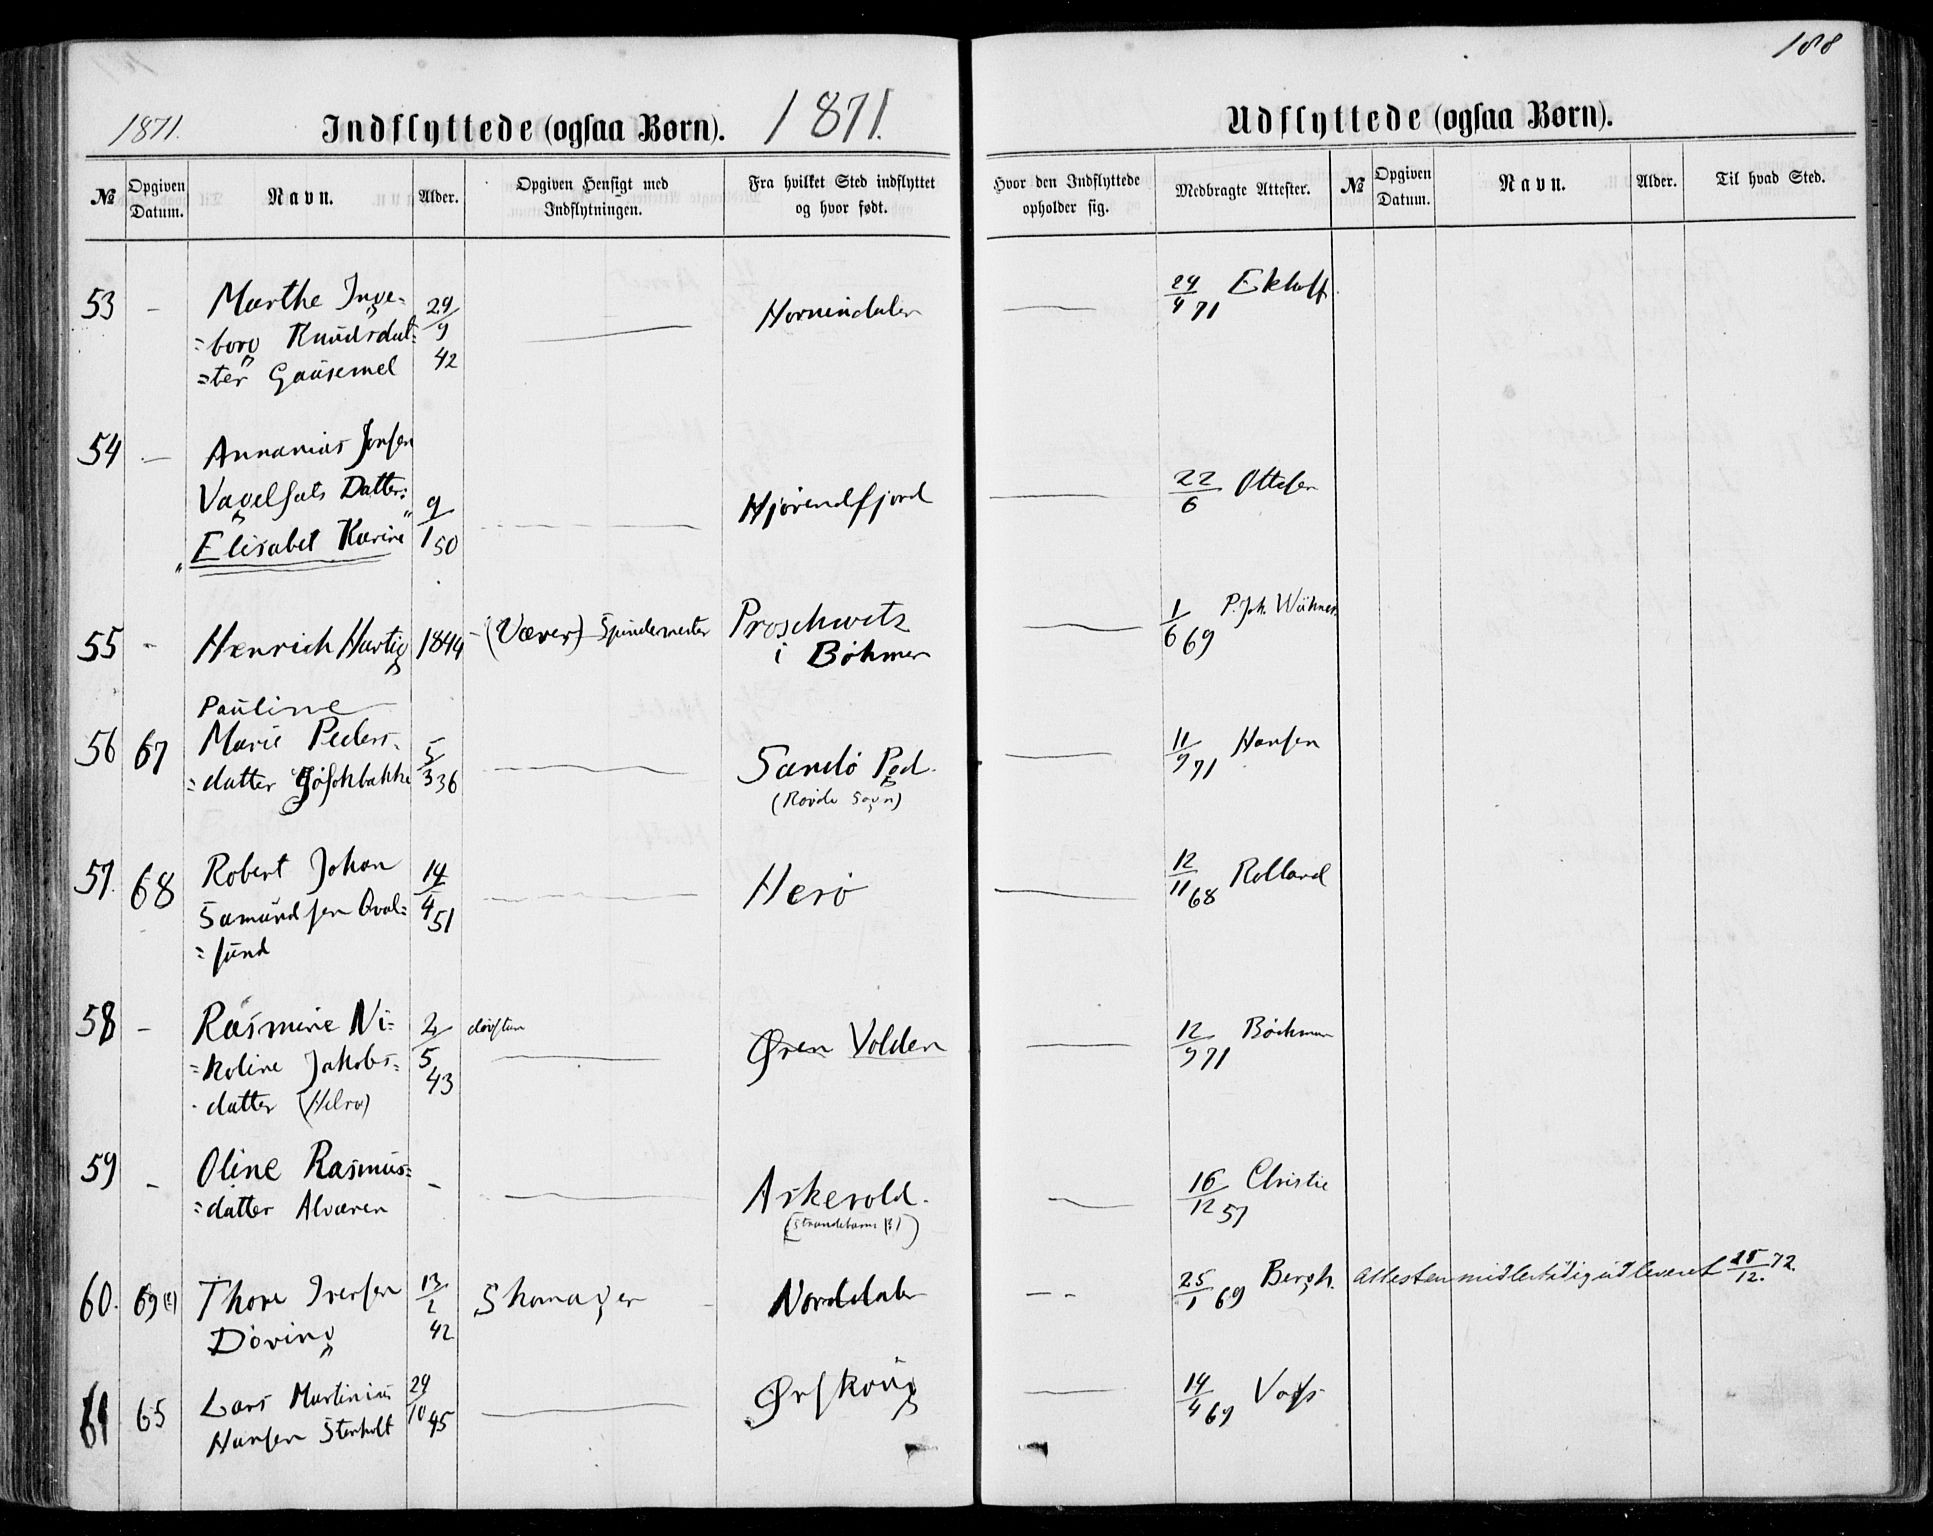 188
1871.
Indflyttede (ogsaa Børn).
1871.
Udflyttede (ogsaa Børn).
№
Opgiven Datum.
Navn.
Alder.
Opgiven Hensigt med Indflytningen.
Fra hvilket Sted indflyttet og hvor født.
Hvor den Indflyttede opholder sig.
Medbragte Attester.
№
Opgiven Datum.
Navn.
Alder.
Til hvad Sted.
53 — Marthe Inge- 29/9 — Hornindalen — 29/4 71
=borg Knudsdat=
=ter Gausemel 42
54 — Annanias Jonsen
Vagelsæts Datter: 9/1 50 — Hjørendfjord — 22/6 Ottesen
"Elisabet Karine"
55 - Henrich Hartig 1844 - (Væver) Spindemester Proschwitz — 1/6 69 P. Joh.
i Bøhmen
Pauline
56 67 Marie Peders- 5/3 36 — Sandø Pgd. — 11/9 71 Hansen
=datter (Rovde Sogn)
57. 68 Robert Johan 14/4 51 — Herø — 12/11 68 Rolland
Samundsen Qval=
=sund
58 - Rasmine Ni= 2/5 43 døvstum — Øren Volden — 12/9 71 Bøckman
=koline Jakobs=
-datter
59 - Oline Rasmus= - — Askevold. — 16/12 57 Christie
=datter Alværen (Strandebarm )
60. 69 Thore Iversen 13/2 42 Skomager - Norddalen — - 25/1 69 Bergh. Attesten midlertidig udleveret 25/12. 72.
Døving
61 65 Lars Martinius 29/10 45 — Ørskoug — 14/4 69 Voss
Hansen Stenholt